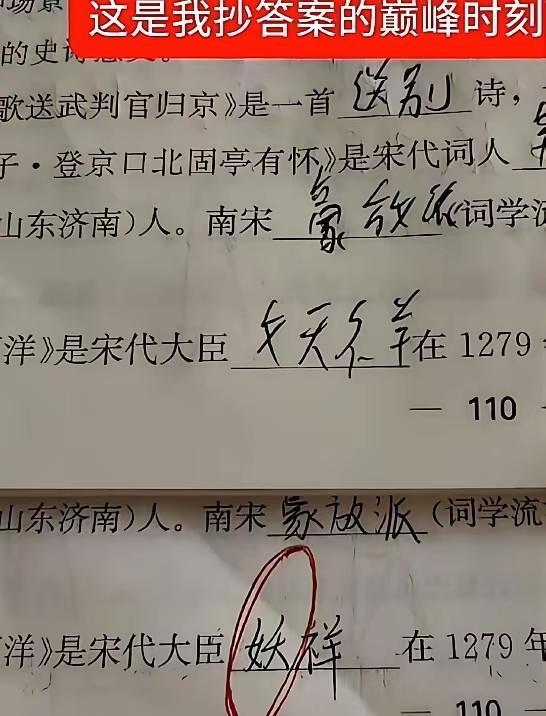 这是我抄答案的巅峰时刻
的史诗意义。
歌送武判官归京》是一首 送别 诗,
子·登京口北固亭有怀》是宋代词人
山东济南)人。南宋 豪放派 词学流
洋》是宋代大臣 文天祥 在 1279
— 110
山东济南)人。南宋 家放派 (词学流
洋》是宋代大臣 妖祥 在 1279 年
— 110